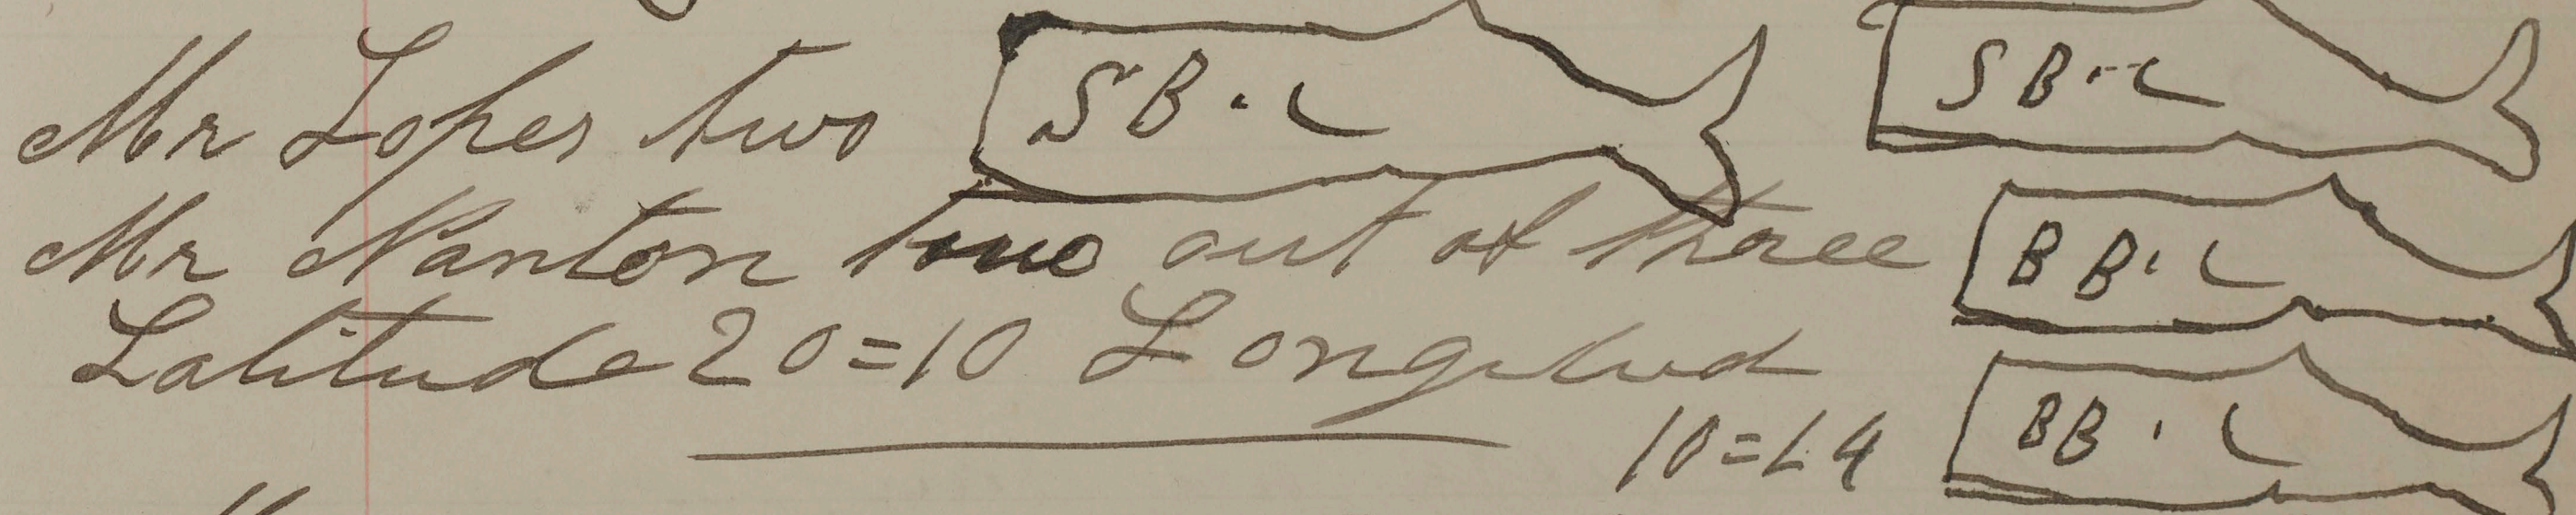 Mr Lopes two S B · L S B · L
Mr Nanton two out of three B B · L
Latitude 20=10 Longitud
10=14 B B · L